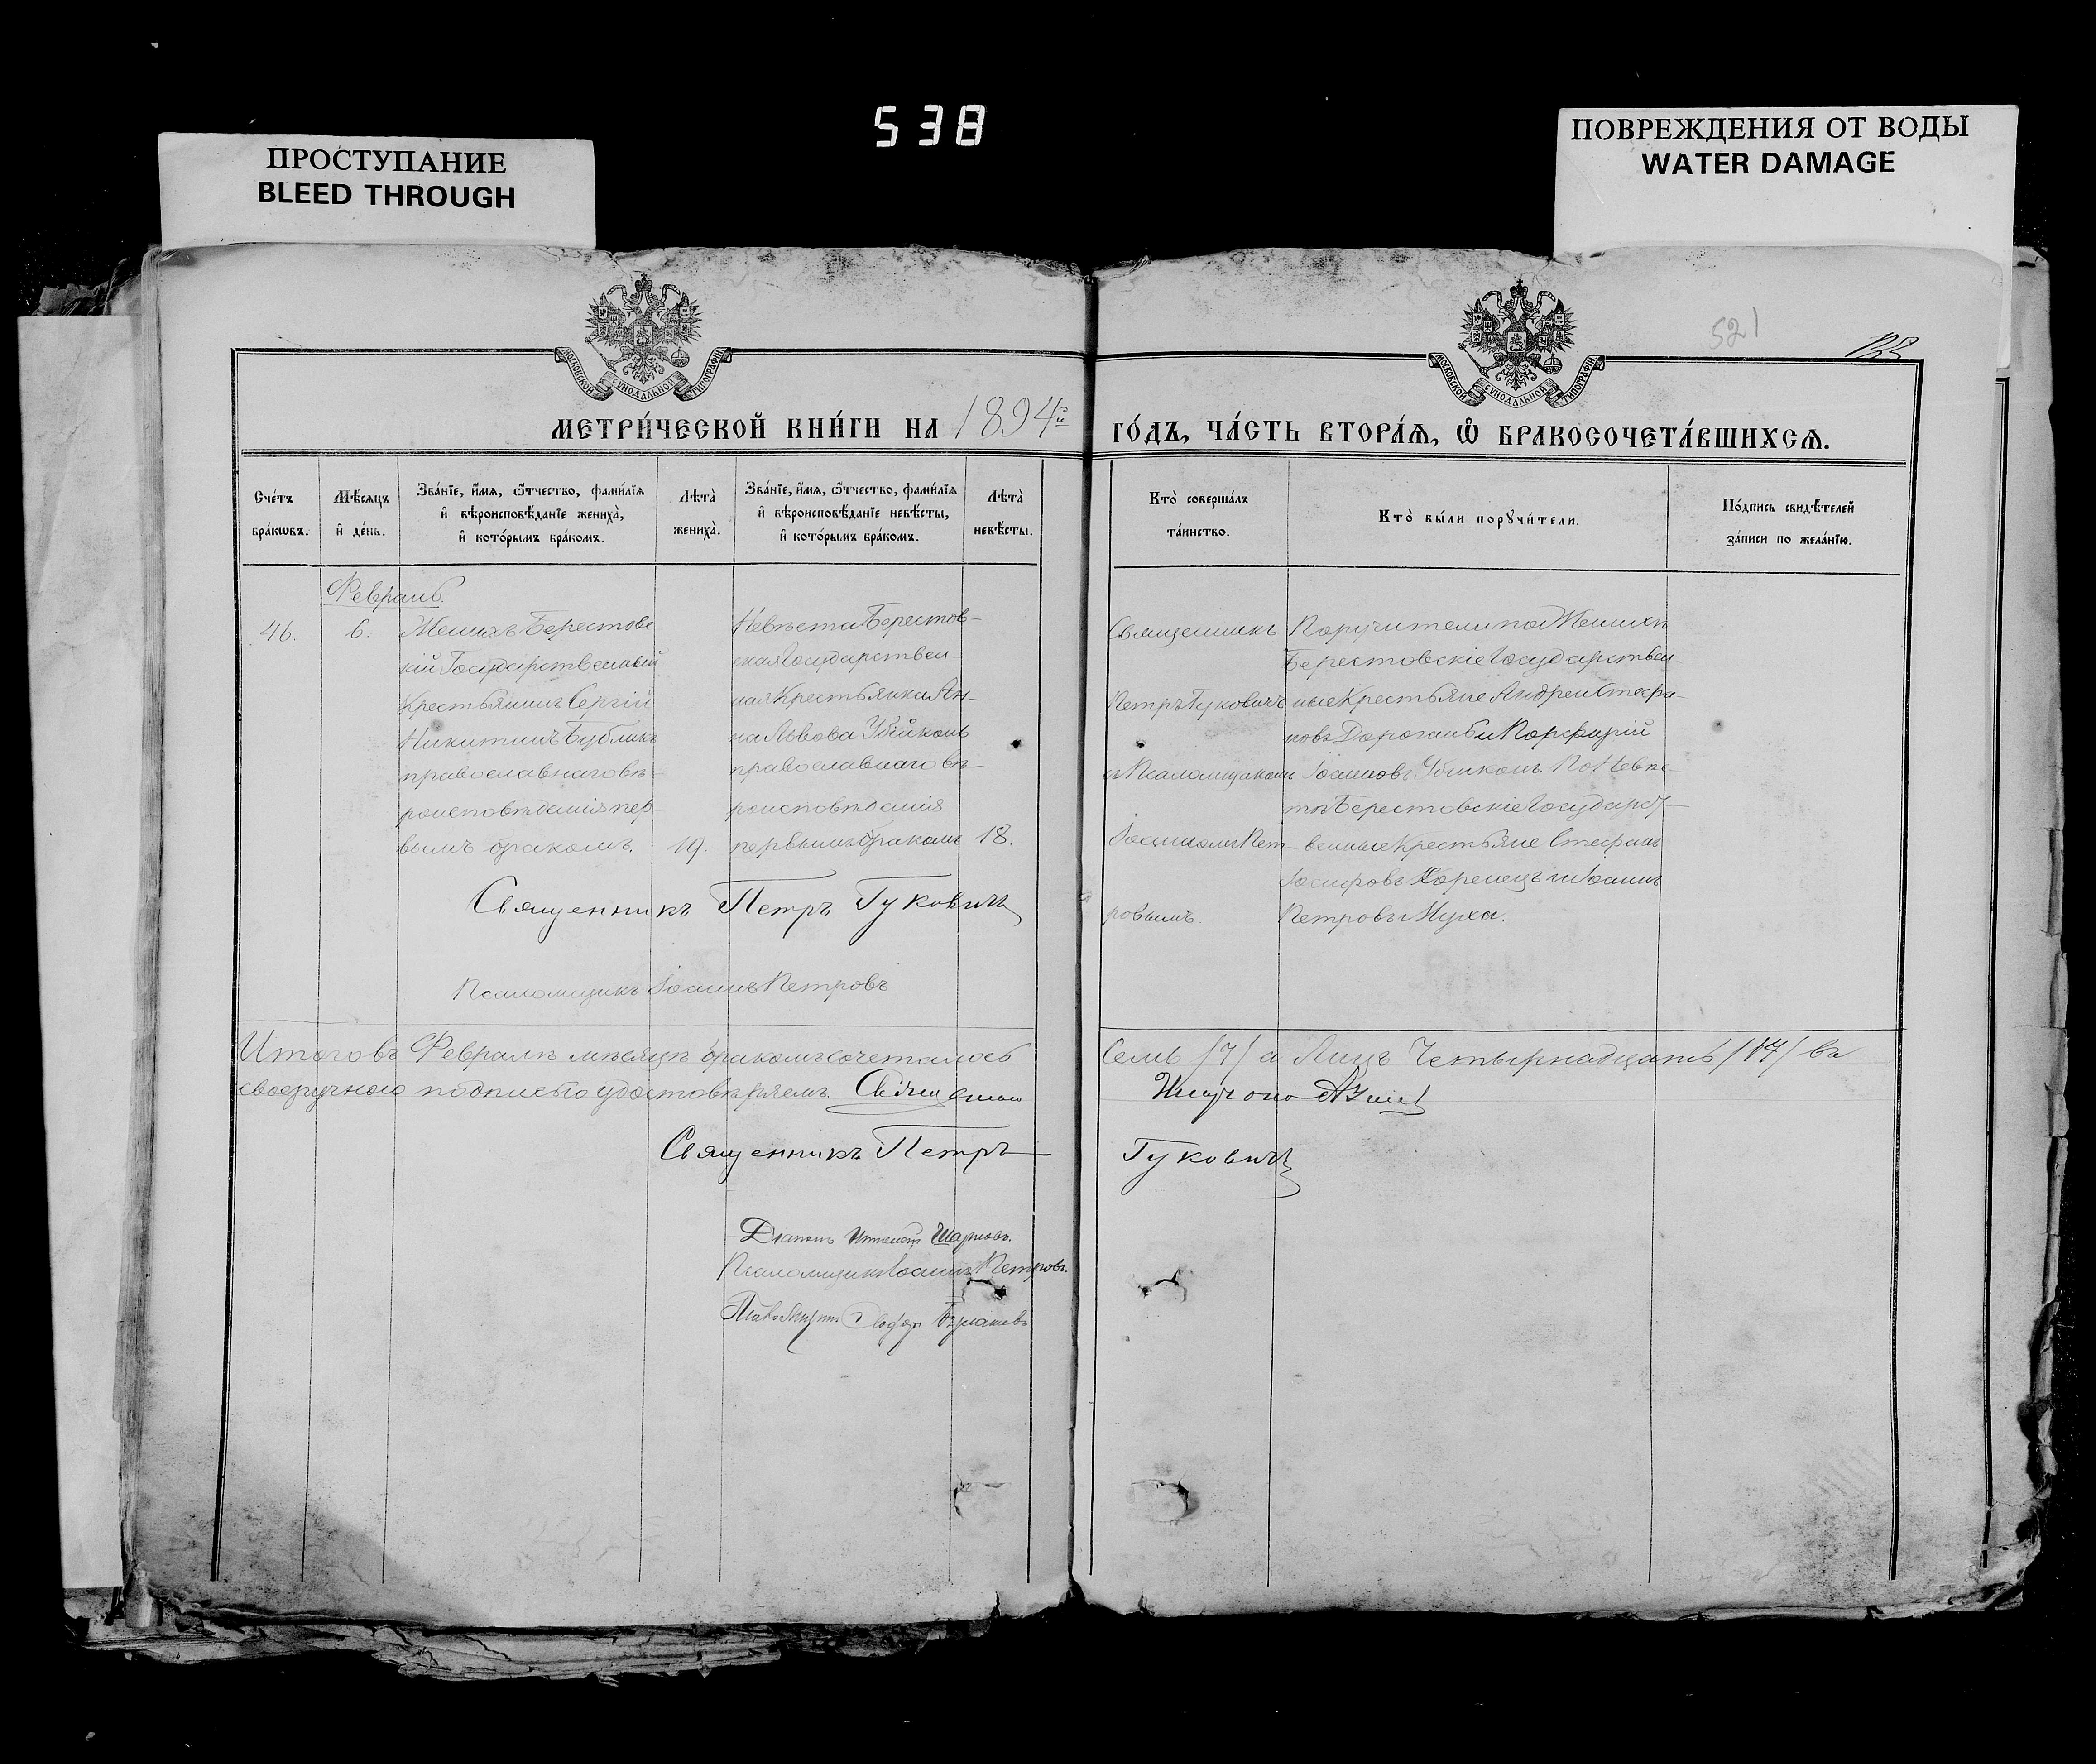 538
ПРОСТУПАНИЕ
BLEED THROUGH
ПОВРЕЖДЕНИЯ ОТ ВОДЫ
WATER DAMAGE
МОСКОВСКОЙ СѴНОДАЛЬНОЙ ТИПОГРАФІИ
МОСКОВСКОЙ СѴНОДАЛЬНОЙ ТИПОГРАФІИ
521
МЕТРИ́ЧЕСКОЙ КНИ́ГИ НА 1894й ГО́ДЪ, ЧА́СТЬ ВТОРА́Ѧ, Ѽ БРАКОСОЧЕТА́ВШИХСѦ.
Сче́тъ
бра́кѡвъ.
Мѣ́сяцъ
и҆ де́нь.
Зва́нїе, и҆́мѧ, ѻ҆́тчество, фами́лїѧ
и҆ вѣроисповѣ́данїе жениха̀,
и҆ кото́рымъ бра́комъ.
Лѣта̀
жениха̀.
Зва́нїе, и҆́мѧ, ѻ҆́тчество, фами́лїѧ
и҆ вѣроисповѣ́данїе невѣ́сты,
и҆ кото́рымъ бра́комъ.
Лѣта̀
невѣ́сты.
Кто̀ соверша́лъ
та́инство.
Кто̀ бы́ли порꙋчи́тели.
По́дпись свидѣ́телей
за́писи по жела́нїю.
Февраль.
46.
6.
Женихъ Берестовс
кій Государственный
Крестьянинъ Сергій
Никитинъ Бубликъ
православнаго вѣ-
роисповѣданія пер
вымъ бракомъ.
19.
Невѣста Берестов-
ская Государствен-
ная Крестьянка Ан-
на Львова Убійконь
православнаго вѣ-
роисповѣданія
первымъ бракомъ
18.
Священникъ
Петръ Гуковичъ
съ Псаломщикомъ
Іоанномъ Пет-
ровымъ.
Поручители по Женихѣ
Берестовскіе Государствен-
ные Крестьяне Андрей Стефа-
новъ Дорогань и Порфирій
Іоанновъ Убійконь. По Невѣс-
тѣ Берестовскіе Государст-
венные Крестьяне Стефанъ
Іосифовъ Коренецъ и Іоаннъ
Петровъ Муха.
Священникъ Петръ Гуковичъ
Псаломщикъ Іоаннъ Петровъ
Итого въ Февралѣ мѣсяцѣ бракомъ сочеталось Семь /7/ а Лицъ Четырнадцать /14/ въ
своеручною подписью удостовѣряемъ. Священникъ
Священникъ Петръ Гуковичъ
Псаломщикъ Іоаннъ Петровъ.